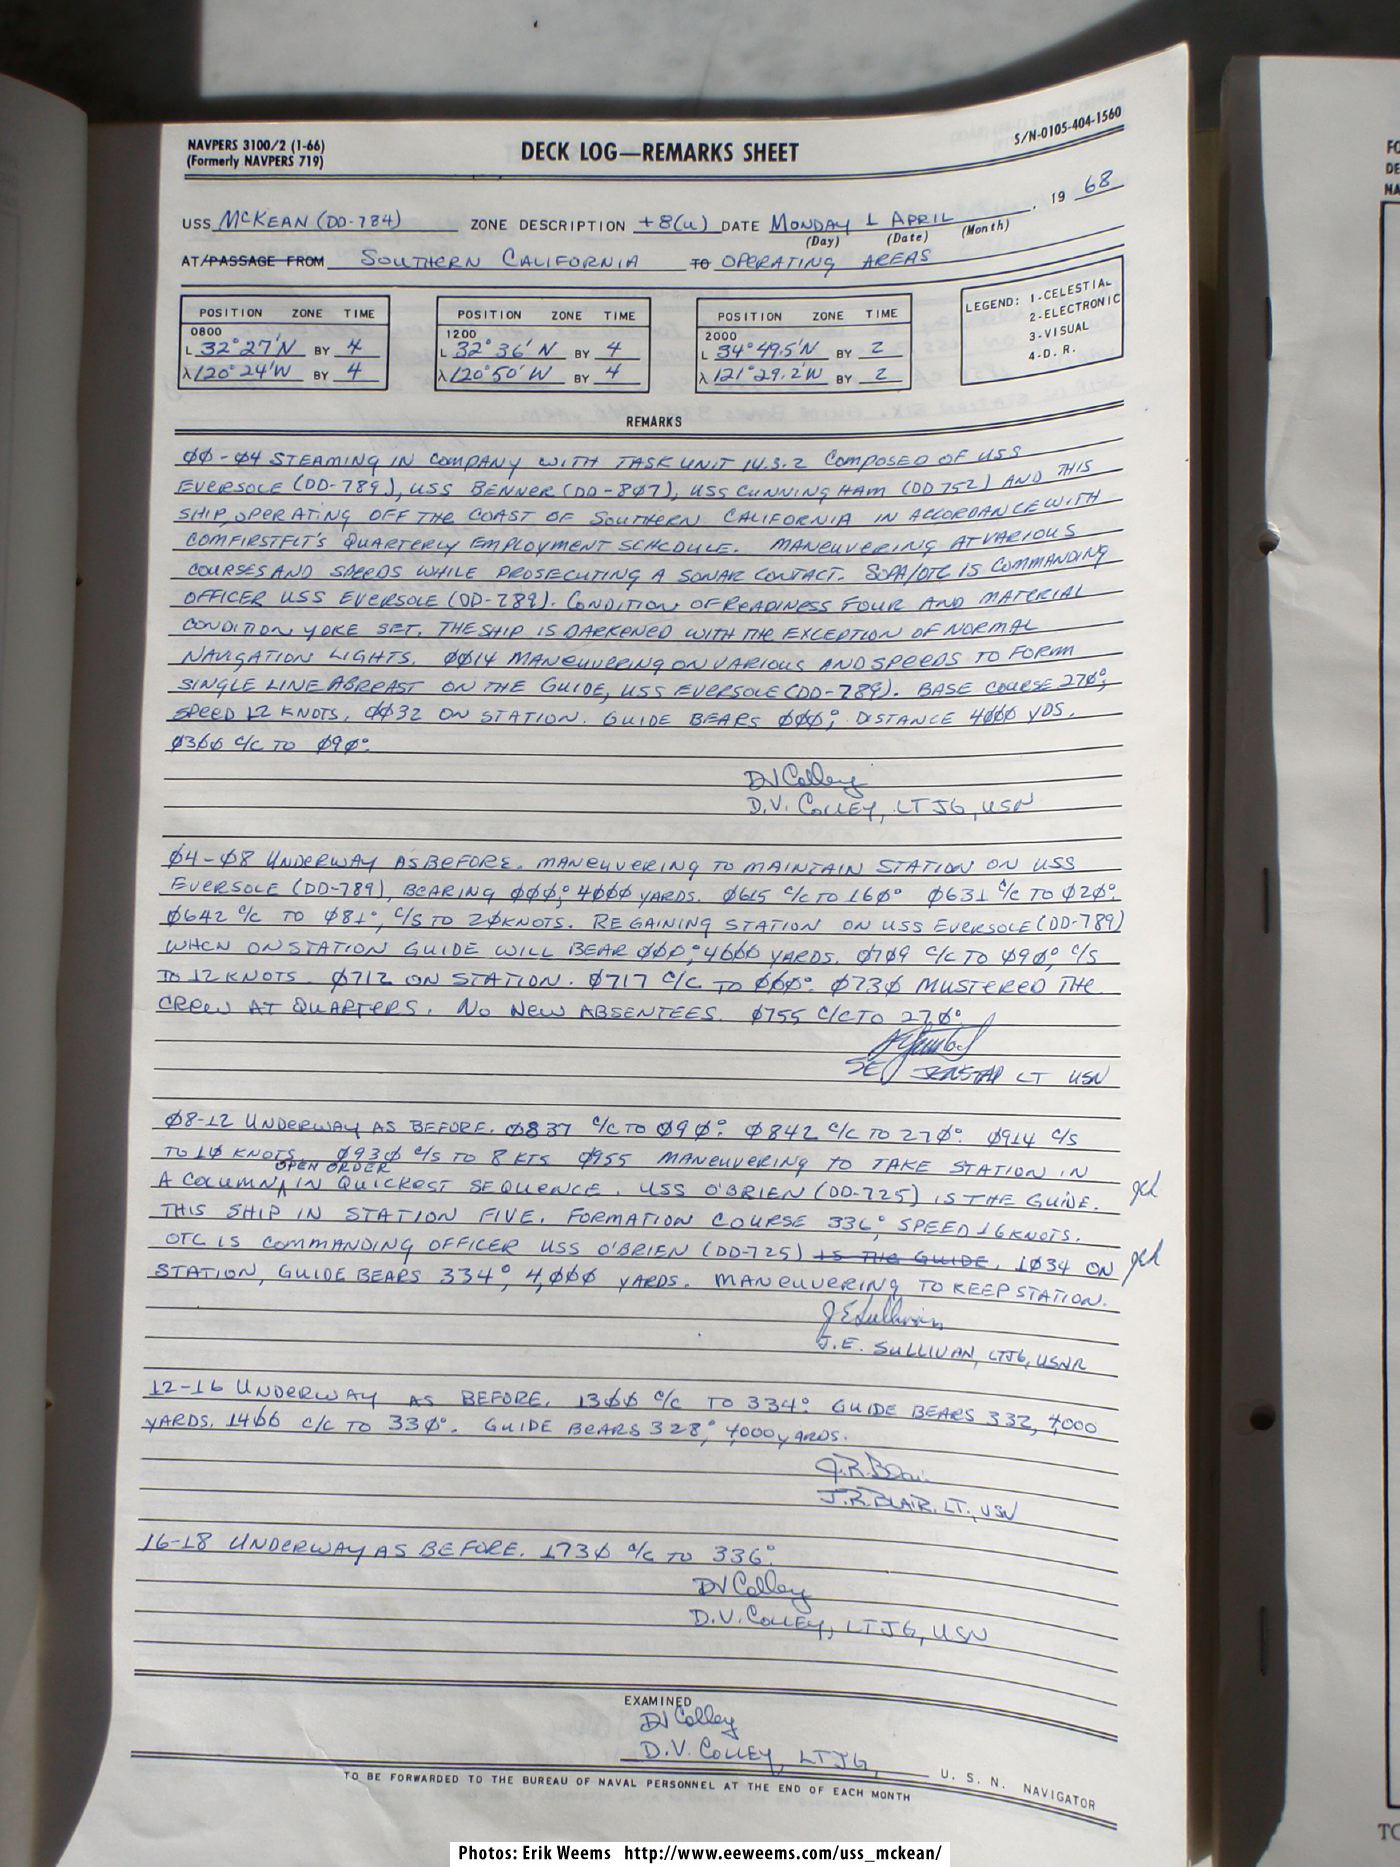 NAVPERS 3100/2 (1-66)
(Formerly NAVPERS 719)
DECK LOG—REMARKS SHEET
S/N-0105-404-1560
USS MCKEAN (DD-784) ZONE DESCRIPTION +8(U) DATE MONDAY 1 APRIL , 19 68
(Day) (Date) (Month)
AT/PASSAGE FROM SOUTHERN CALIFORNIA TO OPERATING AREAS
POSITION ZONE TIME
0800
L 32°27'N BY 4
λ 120°24'W BY 4
POSITION ZONE TIME
1200
L 32°36'N BY 4
λ 120°50'W BY 4
POSITION ZONE TIME
2000
L 34°49.5'N BY 2
λ 121°29.2'W BY 2
LEGEND: 1-CELESTIAL
2-ELECTRONIC
3-VISUAL
4-D.R.
REMARKS
00-04 STEAMING IN COMPANY WITH TASK UNIT 14.3.2 COMPOSED OF USS
EVERSOLE (DD-789), USS BENNER (DD-807), USS CUNNINGHAM (DD 752) AND THIS
SHIP, OPERATING OFF THE COAST OF SOUTHERN CALIFORNIA IN ACCORDANCE WITH
COMFIRSTFLT'S QUARTERLY EMPLOYMENT SCHEDULE. MANEUVERING AT VARIOUS
COURSES AND SPEEDS WHILE PROSECUTING A SONAR CONTACT. SOPA/OTC IS COMMANDING
OFFICER USS EVERSOLE (DD-789). CONDITION OF READINESS FOUR AND MATERIAL
CONDITION YOKE SET. THE SHIP IS DARKENED WITH THE EXCEPTION OF NORMAL
NAVIGATION LIGHTS. 0014 MANEUVERING ON VARIOUS AND SPEEDS TO FORM
SINGLE LINE ABREAST ON THE GUIDE, USS EVERSOLE (DD-789). BASE COURSE 270°,
SPEED 12 KNOTS. 0032 ON STATION. GUIDE BEARS 000°, DISTANCE 4000 YDS.
0300 C/C TO 090°.
DV Colley
D.V. COLLEY, LTJG, USN
04-08 UNDERWAY AS BEFORE. MANEUVERING TO MAINTAIN STATION ON USS
EVERSOLE (DD-789), BEARING 000°, 4000 YARDS. 0615 C/C TO 160° 0631 C/C TO 020°.
0642 C/C TO 081°, C/S TO 20KNOTS. REGAINING STATION ON USS EVERSOLE (DD-789)
WHEN ON STATION GUIDE WILL BEAR 000°, 4000 YARDS. 0709 C/C TO 090°, C/S
TO 12 KNOTS. 0712 ON STATION. 0717 C/C TO 000°. 0730 MUSTERED THE
CREW AT QUARTERS. NO NEW ABSENTEES. 0755 C/C TO 270°.
LT USN
08-12 UNDERWAY AS BEFORE. 0837 C/C TO 090°. 0842 C/C TO 270°. 0914 C/S
TO 10 KNOTS. 0930 C/S TO 8 KTS 0955 MANEUVERING TO TAKE STATION IN
OPEN ORDER
A COLUMN IN QUICKEST SEQUENCE. USS O'BRIEN (DD-725) IS THE GUIDE.
THIS SHIP IN STATION FIVE. FORMATION COURSE 336°, SPEED 16 KNOTS.
OTC IS COMMANDING OFFICER USS O'BRIEN (DD-725) IS THE GUIDE. 1034 ON
STATION, GUIDE BEARS 334°, 4,000 YARDS. MANEUVERING TO KEEP STATION.
J E Sullivan
J.E. SULLIVAN, LTJG, USNR
12-16 UNDERWAY AS BEFORE. 1300 C/C TO 334°. GUIDE BEARS 332, 4000
YARDS. 1400 C/C TO 330°. GUIDE BEARS 328°, 4000 YARDS.
J.R. Blair
J.R. BLAIR, LT., USN
16-18 UNDERWAY AS BEFORE. 1730 C/C TO 336°.
DV Colley
D.V. COLLEY, LTJG, USN
EXAMINED
DV Colley
D.V. COLLEY, LTJG, U. S. N. NAVIGATOR
TO BE FORWARDED TO THE BUREAU OF NAVAL PERSONNEL AT THE END OF EACH MONTH
Photos: Erik Weems http://www.eeweems.com/uss_mckean/